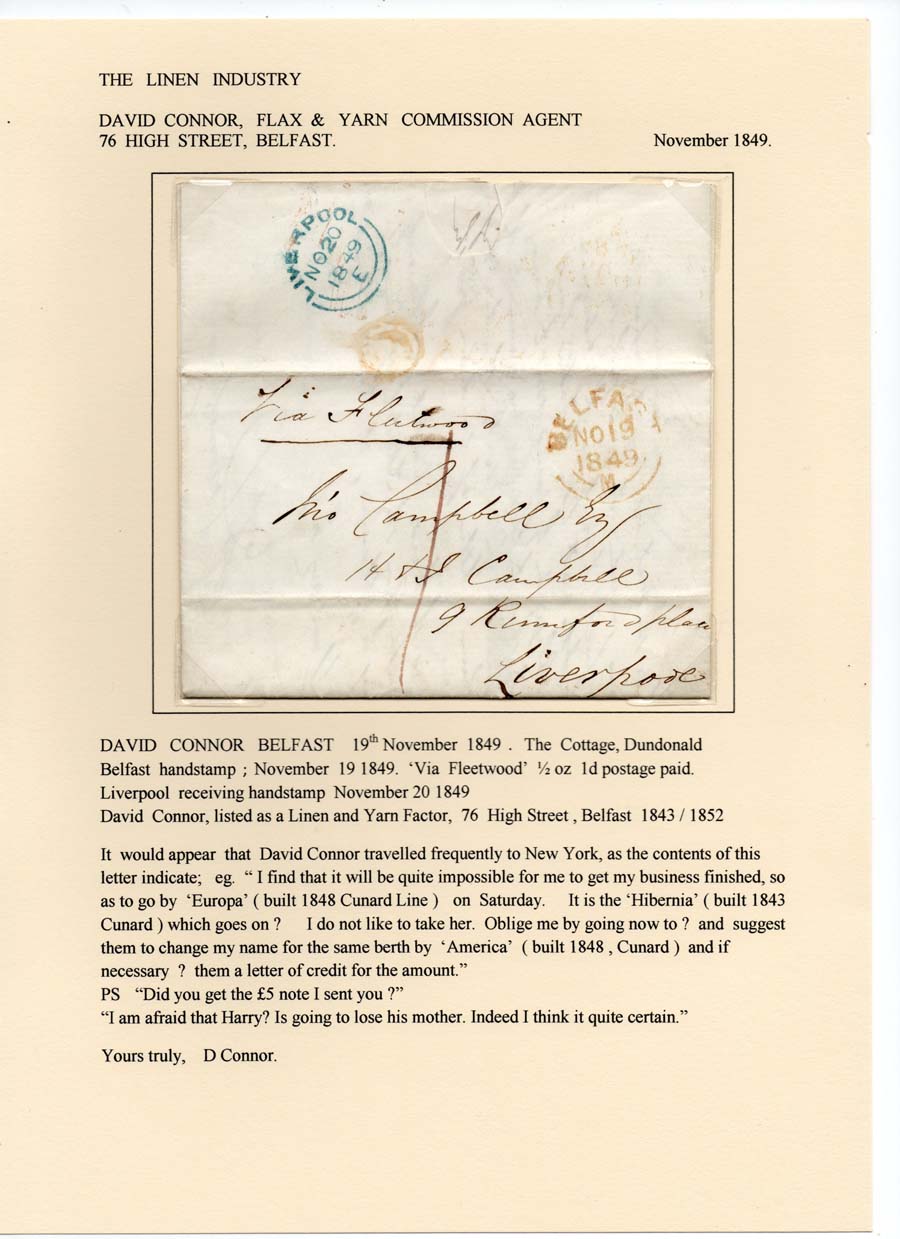 THE LINEN INDUSTRY
DAVID CONNOR, FLAX & YARN COMMISSION AGENT
76 HIGH STREET, BELFAST. November 1849.
LIVERPOOL
NO 20
1849
E
Via Fleetwood
BELFAST
NO 19
1849
M
1
Jno Campbell Esq
H & J Campbell
9 Rumford place
Liverpool
DAVID CONNOR BELFAST 19th November 1849 . The Cottage, Dundonald
Belfast handstamp ; November 19 1849. ‘Via Fleetwood’ ½ oz 1d postage paid.
Liverpool receiving handstamp November 20 1849
David Connor, listed as a Linen and Yarn Factor, 76 High Street , Belfast 1843 / 1852
It would appear that David Connor travelled frequently to New York, as the contents of this
letter indicate; eg. “ I find that it will be quite impossible for me to get my business finished, so
as to go by ‘Europa’ ( built 1848 Cunard Line ) on Saturday. It is the ‘Hibernia’ ( built 1843
Cunard ) which goes on ? I do not like to take her. Oblige me by going now to ? and suggest
them to change my name for the same berth by ‘America’ ( built 1848 , Cunard ) and if
necessary ? them a letter of credit for the amount.”
PS “Did you get the £5 note I sent you ?”
“I am afraid that Harry? Is going to lose his mother. Indeed I think it quite certain.”
Yours truly, D Connor.